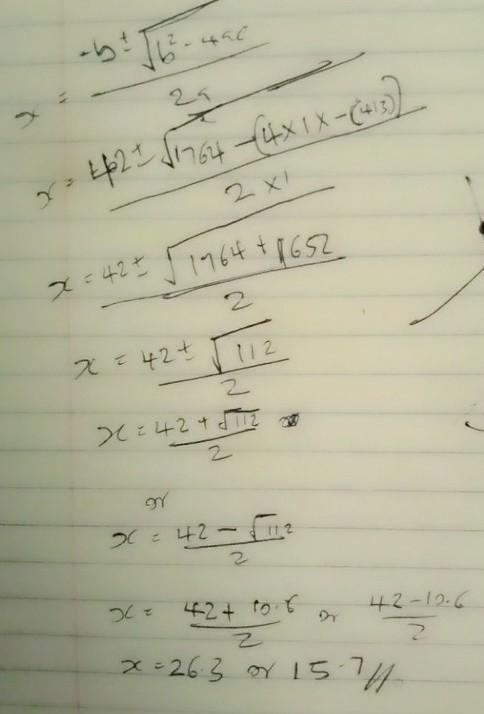 x = -b ± √b² - 4ac / 2a
x = 42 ± √1764 - (4x1x - (413) / 2 x 1
x = 42 ± √1764 + 1652 / 2
x = 42 ± √112 / 2
x = 42 + √112 / 2
or
x = 42 - √112 / 2
x = 42 + 10.6 / 2 or 42 - 10.6 / 2
x = 26.3 or 15.7 //